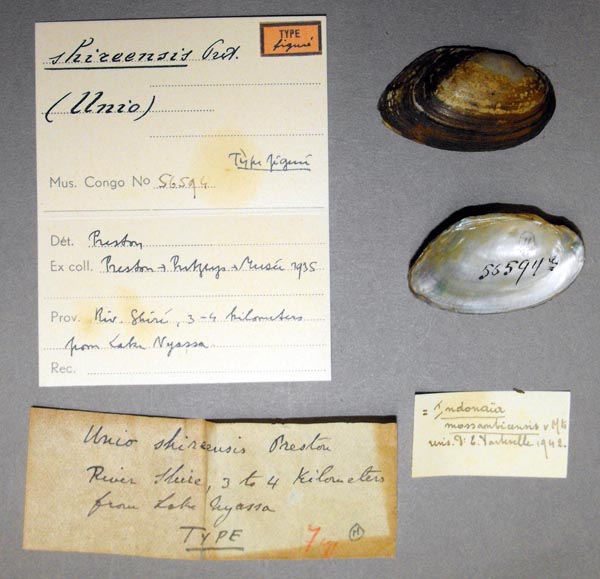 TYPE
figuré
shireensis Prest.
(Unio)
Type figuré
Mus. Congo No 56594
Dét. Preston
Ex coll. Preston → Putzeys → Musée 1935
Prov. Riv. Shiré, 3-4 kilometers
from Lake Nyassa.
Rec.
56594
Unio shireensis Preston
River Shire, 3 to 4 Kilometers
from Lake Nyassa
TYPE
H
= Indonaïa
mossambicensis v. Mts
1942.